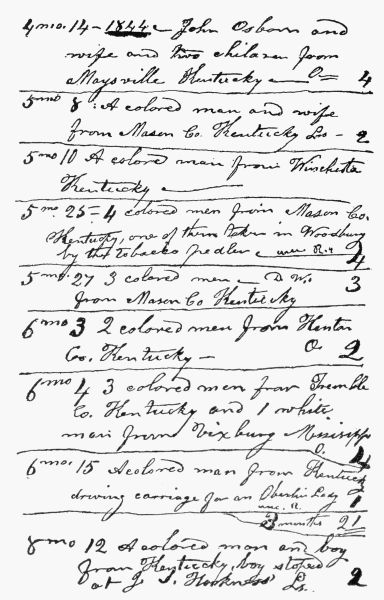 4 mo. 14 - 1844 - John Osborn and
wife and two children from
Maysville Kentucky - O= 4
5 mo 8 : A colored man and wife
from Mason Co. Kentucky Ls - 2
5 mo 10 A colord man from
Kentucky
5 mo. 25 - 4 colored men from Mason Co.
Kentucky, one of them taken in Woodbury
by the tobacko pedler - unc. R. 4
5 mo. 27 3 colored men - D W. 3
from Mason Co Kentucky
6 mo 3 2 colored men from Kenton
Co. Kentucky - O 2
6 mo 4 3 colored men from Tremble
Co. Kentucky and 1 white
man from Vixburg Missisipp
O. 4
6 mo. 15 A colored man from Kentuck
driving carriage for an Oberlin Lady
unc. R. 1
3 months 21
8 mo 12 A colored man and boy
from Kentucky, boy stoped
at J. Ls. 2